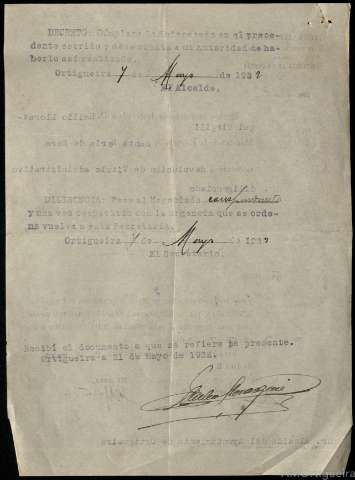 DECRETO: Cúmplase lo interesado en el prece-
dente escrito y dése cuenta a su Autoridad de ha-
berlo así realizado.
Ortigueira 7 de Mayo de 1932
El Alcalde.
DILIGENCIA: Pasa al Negociado correspondiente
y una vez despachado con la urgencia que se orde-
na vuelva a esta Secretaría.
Ortigueira 7 de Mayo de 1932
El Secretario.
Recibí el documento a que se refiere la presente.
Ortigueira a 21 de Mayo de 1932.